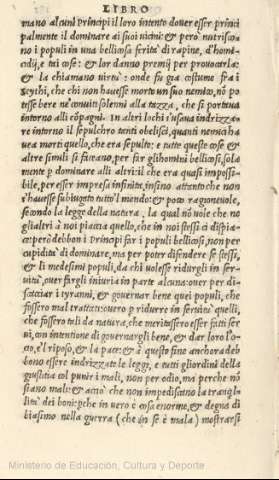 LIBRO
mano alcuni Principi il loro intento dover esser princi
palmente il dominare ai suoi uicini: & però nutrisco
no i populi in una bellicosa ferità di rapine, d'homi
cidij, e tai cose: & lor danno premij per prouocarla: &
& la chiamano uirtù: onde fu già costume fra i
Scythi, che chi non hauesse morto un suo nemico, nõ po
tesse bere ne' conuiti solenni alla tazza, che si portaua
intorno alli cõpagni. In altri lochi s'usaua indrizza
re intorno il sepulchro tanti obelisci, quanti nemici ha
uea morti quello, che era sepulto: e tutte queste cose &
altre simili si faceano, per far gli homini bellicosi, sola
mente p dominare alli altri: il che era quasi impossi
bile, per esser impresa infinita, insino attanto che non
s'hauesse subiugato tutto'l mondo: & poco ragioneuole,
secondo la legge della natura, la qual nõ uole che ne
gli altri à noi piaccia quello, che in noi stessi ci dispia-
ce: però debbon i Principi far i populi bellicosi, non per
cupidità di dominare, ma per poter difendere se stessi,
& li medesimi populi, da chi uolesse ridurgli in ser-
uitù, ouer far gli iniuria in parte alcuna: ouer per di-
scacciar i tyranni, & gouernar bene quei populi, che
fossero mal trattati: ouero p ridurre in seruitù quelli,
che fossero tali da natura, che meritassero esser fatti ser
ui, con intentione di gouernargli bene, & dar loro l'o-
cio, e'l riposo, & la pace: & à questo fine anchora deb
bono essere indrizzate le leggi, e tutti gli ordini della
giustitia col punir i mali, non per odio, ma perche nõ
siano mali: & acciò che non impediscano la tranqui-
lità dei boni: perche in uero è cosa enorme, & degna di
biasimo nella guerra (che in se è mala) mostrarsi
Ministerio de Educación, Cultura y Deporte